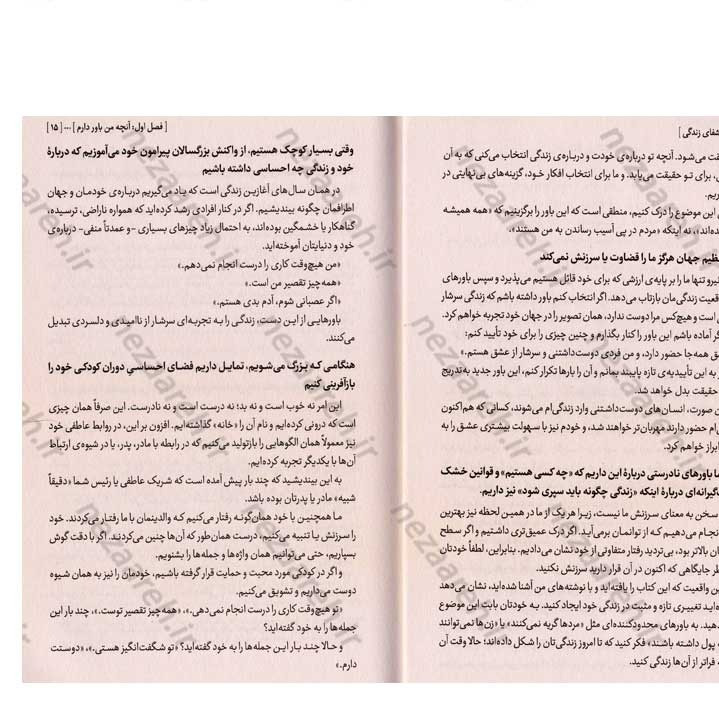 شفای زندگی ]
قت می‌شود. آنچه تو درباره‌ی خودت و درباره‌ی زندگی انتخاب می‌کنی که به آن
، برای تـو حقیقت می‌یابد. و ما برای انتخاب افکار خـود، گزینه‌های بی‌نهایتی در
ریم.
این موضوع را درک کنیم، منطقی است که این باور را برگزینیم که «همه همیشه
ده‌اند»، نه اینکه «مردم در پی آسیب رساندن به من هستند».
ظیم جهان هرگز ما را قضاوت یا سرزنش نمی‌کند
نیرو تنها ما را بر پایه‌ی ارزشی که برای خود قائل هستیم می‌پذیرد و سپس باورهای
قعیت زندگی‌مان بازتاب می‌دهد. اگر انتخاب کنم باور داشته باشم که زندگی سرشار
ی است و هیچ‌کس مرا دوست ندارد، همان تصویر را در جهان خود تجربه خواهم کرد.
گر آماده باشم این باور را کنار بگذارم و چنین چیزی را برای خود تأیید کنم:
ق همه‌جا حضور دارد، و من فردی دوست‌داشتنی و سرشار از عشق هستم.»
ر به این تأییدیه‌ی تازه پایبند بمانم و آن را بارها تکرار کنم، این باور جدید به‌تدریج
حقیقت بدل خواهد شد.
ن صورت، انسان‌های دوست‌داشـتنی وارد زندگی‌ام می‌شوند، کسانی که هم‌اکنون
ی‌ام حضور دارند مهربان‌تر خواهند شد، و خودم نیز با سهولت بیشـتری عشق را به
ابراز خواهم کرد.
ما باورهای نادرستی درباره‌ٔ این داریم که «چه کسی هستیم» و قوانین خشک
گیرانه‌ای درباره‌ٔ اینکه «زندگی چگونه باید سپری شود» نیز داریم.
سـخن به معنای سـرزنش ما نیست، زیـرا هر یک از ما در همین لحظه نیز بهترین
نجـام می‌دهیـم کـه از توانمـان برمی‌آیـد. اگر درک عمیق‌تری داشـتیم و اگر سـطح
ان بالاتر بود، بی‌تردید رفتار متفاوتی از خود نشان می‌دادیم. بنابراین، لطفاً خودتان
طر جایگاهی که اکنون در آن قرار دارید سرزنش نکنید.
ین واقعیت که این کتاب را یافته‌اید و با نوشته‌های من آشنا شده‌اید، نشان می‌دهد
ه‌ایـد تغییـری تازه و مثبت در زندگی خود ایجاد کنید. بـه خودتان بابت این موضوع
دهید. به باورهای محدودکننده‌ای مثل «مردها گریه نمی‌کنند» یا «زن‌ها نمی‌توانند
ه پول داشته باشند» فکر کنید که تا امروز زندگی‌تان را شکل داده‌اند؛ حالا وقت آن
ه فراتر از آن‌ها زندگی کنید.
[ فصل اول: آنچه من باور دارم ] ... [ ۱۵ ]
وقتی بسـیار کوچک هستیم، از واکنش بزرگسالان پیرامون خود می‌آموزیم که درباره‌ٔ
خود و زندگی چه احساسی داشته باشیم
در همـان سـال‌های آغازیـن زندگی است که یـاد می‌گیریم دربـاره‌ی خودمـان و جهان
اطرافمان چگونه بیندیشـیم. اگر در کنار افرادی رشـد کرده‌اید که همواره ناراضی، ترسیده،
گناهکار یا خشمگین بوده‌اند، به احتمال زیاد چیزهای بسیاری -و عمدتاً منفی- درباره‌ی
خود و دنیایتان آموخته‌اید.
«من هیچ‌وقت کاری را درست انجام نمی‌دهم.»
«همه چیز تقصیر من است.»
«اگر عصبانی شوم، آدم بدی هستم.»
باورهایـی از ایـن دسـت، زندگـی را بـه تجربـه‌ای سرشـار از ناامیـدی و دلسـردی تبدیل
می‌کنند.
هنگامـی کـه بـزرگ می‌شـویم، تمایـل داریـم فضـای احساسـیِ دوران کودکـی خود را
بازآفرینی کنیم
این امر نه خوب است و نه بد؛ نه درسـت اسـت و نـه نادرسـت. این صرفاً همان چیزی
است که درونی کرده‌ایم و نام آن را «خانه» گذاشته‌ایم. افزون بر این، در روابط عاطفی خود
نیز معمولاً همان الگوهایی را بازتولید می‌کنیم که در رابطه با مادر، پدر، یا در شیوه‌ی ارتباط
آن‌ها با یکدیگر تجربه کرده‌ایم.
به این بیندیشید که چند بار پیش آمده است که شـریک عاطفی یا رئیس شـما «دقیقاً
شبیه» مادر یا پدرتان بوده باشد.
مـا همچنیـن با خود همان‌گونـه رفتار می‌کنیم کـه والدینمان با ما رفتـار می‌کردند. خود
را سـرزنش یـا تنبیـه می‌کنیم، درسـت همان‌طور که آن‌هـا چنین می‌کردنـد. اگر با دقت گوش
بسپاریم، حتی می‌توانیم همان واژه‌ها و جمله‌ها را بشنویم.
و اگر در کودکی مورد محبت و حمایت قرار گرفته باشـیم، خودمان را نیز به همان شـیوه
دوست می‌داریم و تشویق می‌کنیم.
«تو هیچ‌وقت کاری را درست انجام نمی‌دهی.»، «همه چیز تقصیر توست.»، چند بار این
جمله‌ها را به خود گفته‌اید؟
و حـالا چنـد بـار ایـن جمله‌ها را به خود گفته‌اید؟ «تو شـگفت‌انگیز هسـتی.»، «دوسـتت
دارم.»
nezaameh.ir